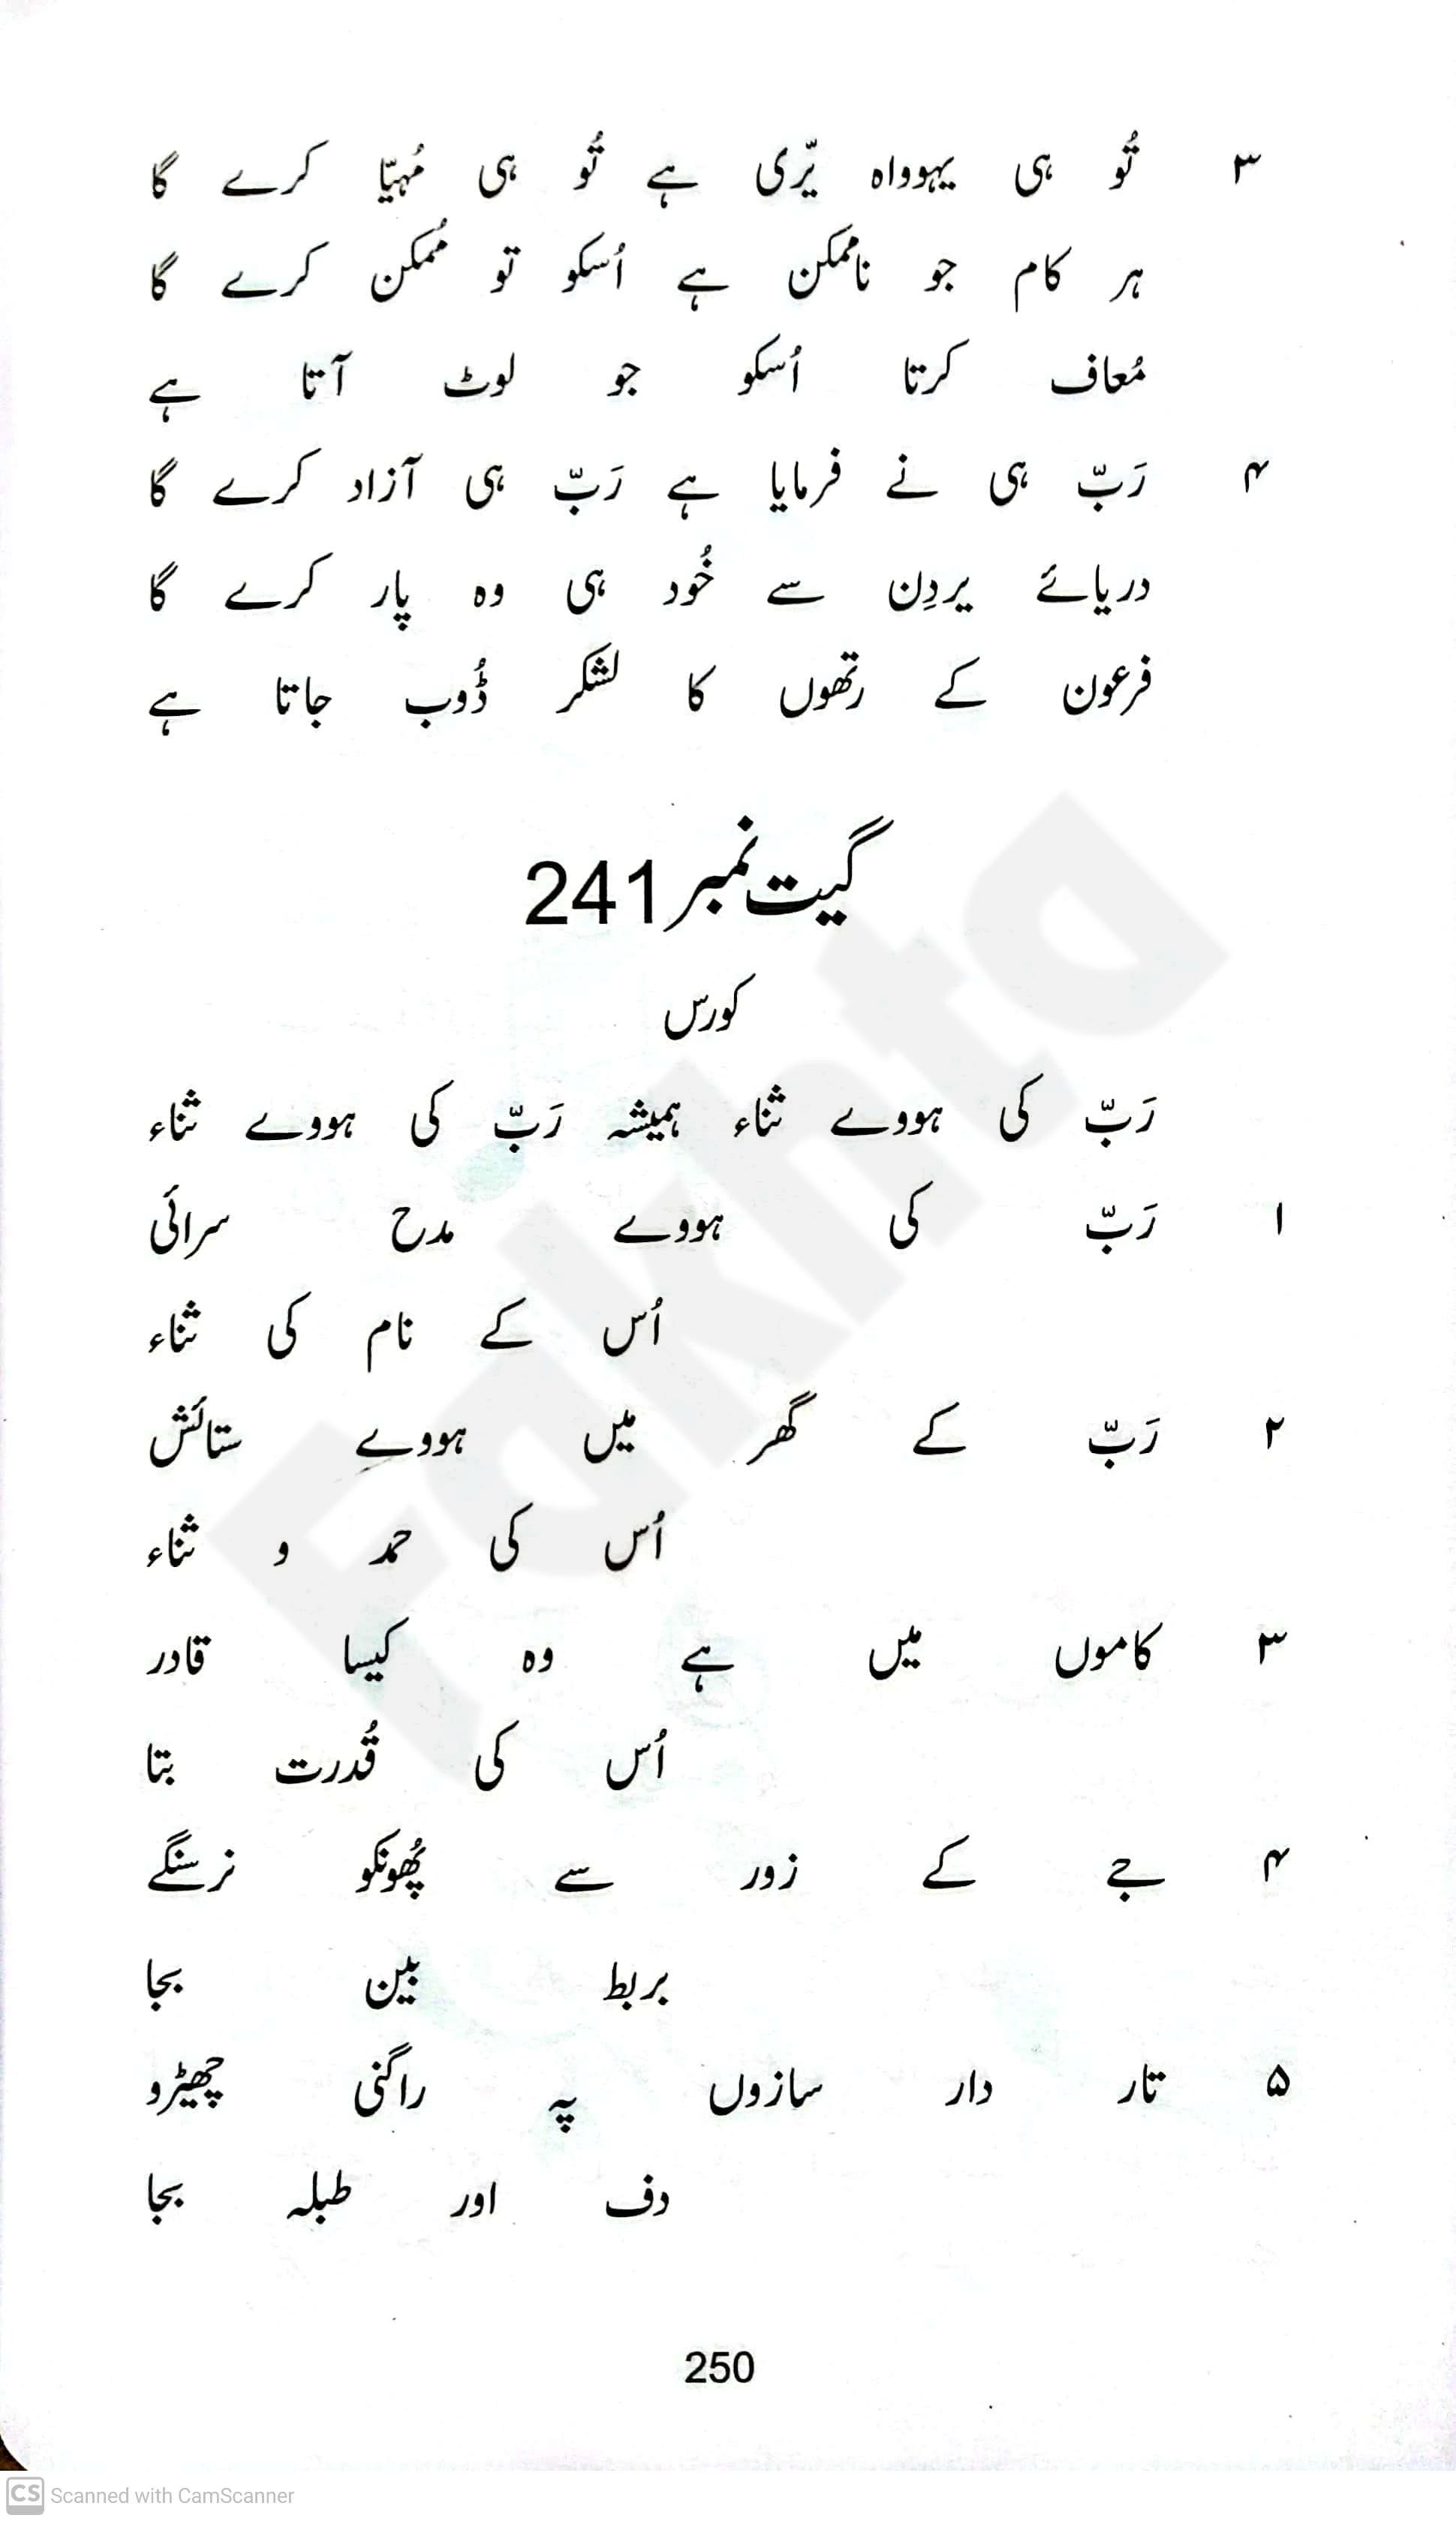 ۳ تُو ہی یہوواہ یّری ہے تُو ہی مُہیّا کرے گا
ہر کام جو ناممکن ہے اُسکو تو مُمکن کرے گا
مُعاف کرتا اُسکو جو لوٹ آتا ہے
۴ رَبّ ہی نے فرمایا ہے رَبّ ہی آزاد کرے گا
دریائے یردِن سے خُود ہی وہ پار کرے گا
فرعون کے رتھوں کا لشکر ڈُوب جاتا ہے
گیت نمبر 241
کورس
رَبّ کی ہووے ثناء ہمیشہ رَبّ کی ہووے ثناء
۱ رَبّ کی ہووے مدح سرائی
اُس کے نام کی ثناء
۲ رَبّ کے گھر میں ہووے ستائش
اُس کی حمد و ثناء
۳ کاموں میں ہے وہ کیسا قادر
اُس کی قُدرت بتا
۴ جے کے زور سے پُھونکو نرسنگے
بربط بین بجا
۵ تار دار سازوں پہ راگنی چھیڑو
دف اور طبلہ بجا
250
Fakhta
CS Scanned with CamScanner